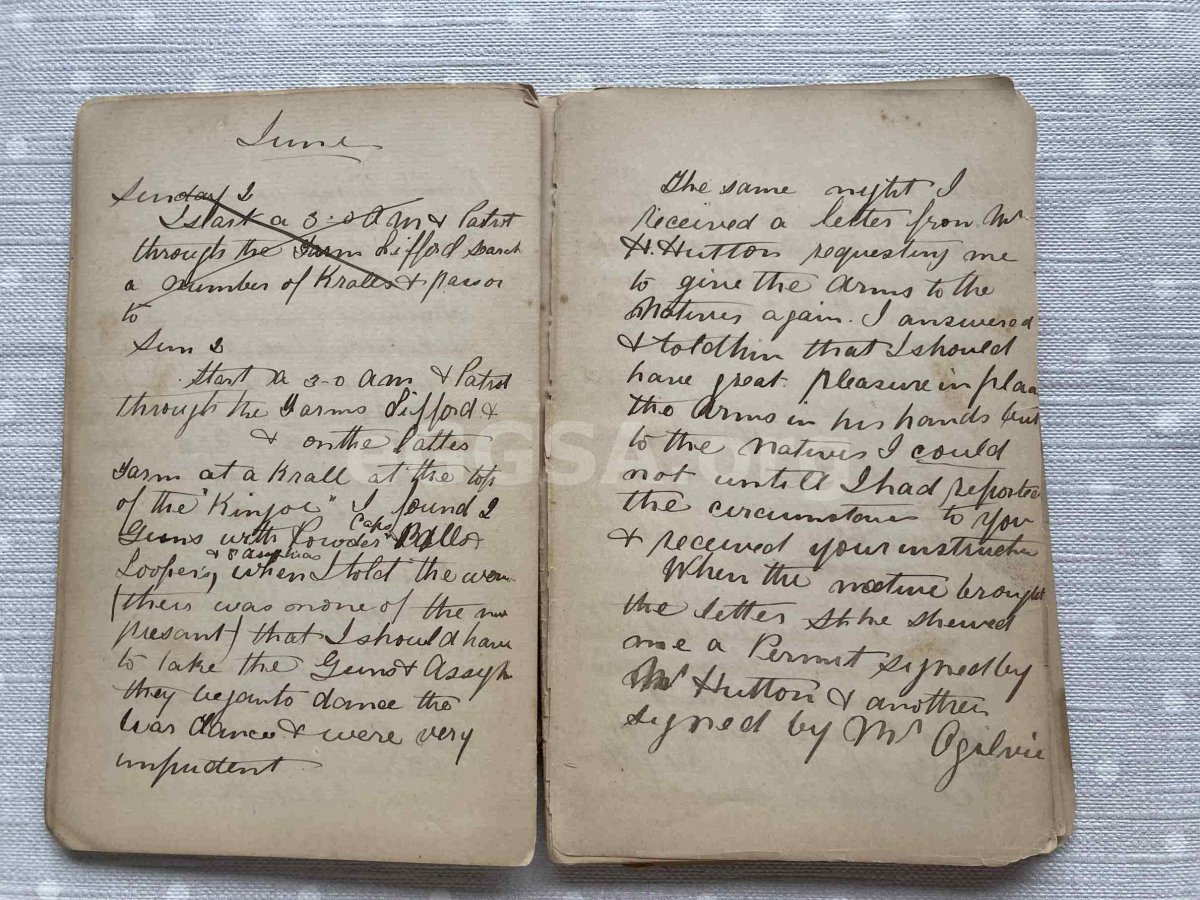 June
Sunday 2
I start a 3-0 am & Patrol
through the Farm Lifford search
a number of Kralls & pass on
to
Sun 2
Start a 3-0 am & Patrol
through the Farms Lifford &
& on the Lattes
Farm at a Krall at the top
of the "Kinjoe" I found 2
Caps
Guns with Powder Balls &
& 8 assghias
Loopers, when I told the wom
(theis was none of the me
presant) that I should have
to take the Guns & Assgh
they began to dance the
War dance & were very
impudent
The same night I
received a letter from Mr
H. Hutton requesting me
to give the Arms to the
Natives again. I answered
& told him that I should
have great pleasure in plac
the Arms in his hands but
to the Natives I could
not untill I had reported
the circumstance to you
& received your instruction
When the native brought
the letter he shewed
me a Permit signed by
Mr Hutton & another
signed by Mr Ogilvie
eGGSA.org